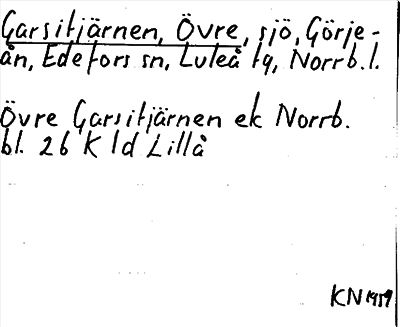 Garsitjärnen, Övre, sjö, Görje-
ån, Edefors sn, Luleå tg, Norrb. l.
Övre Garsitjärnen ek Norrb.
bl. 26 K 1d Lillå
KN 1959